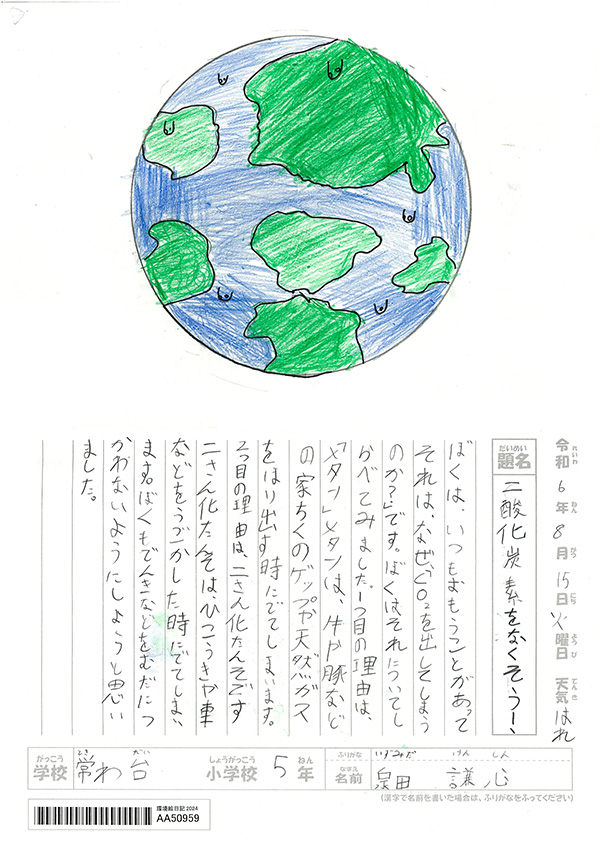 令和6年8月15日火曜日 天気はれ
れいわ ねん がつ にち よう び てん き
だいめい
題名 二酸化炭素をなくそうー、
ぼくは、いつもおもうことがあって
それは、なぜ、CO₂を出してしまう
のか?です。ぼくはそれについてし
らべてみました。1つ目の理由は、
「メタン」メタンは、牛や豚など
の家ちくのゲップや天然ガス
をほり出す時にでてしまいます。
2つ目の理由は、二さん化たんそです
二さん化たんそは、ひこうきや車
などをうごかした時にでてしまい
ます。ぼくもでんきなどをむだにつ
かわないようにしようと思い
ました。
がっこう とき だい しょうがっこう ねん
学校 常わ台 小学校 5年
ふりがな いずみだ けん しん
なまえ
名前 泉田 謙心
(漢字で名前を書いた場合は、ふりがなをふってください)
環境絵日記2024
AA50959